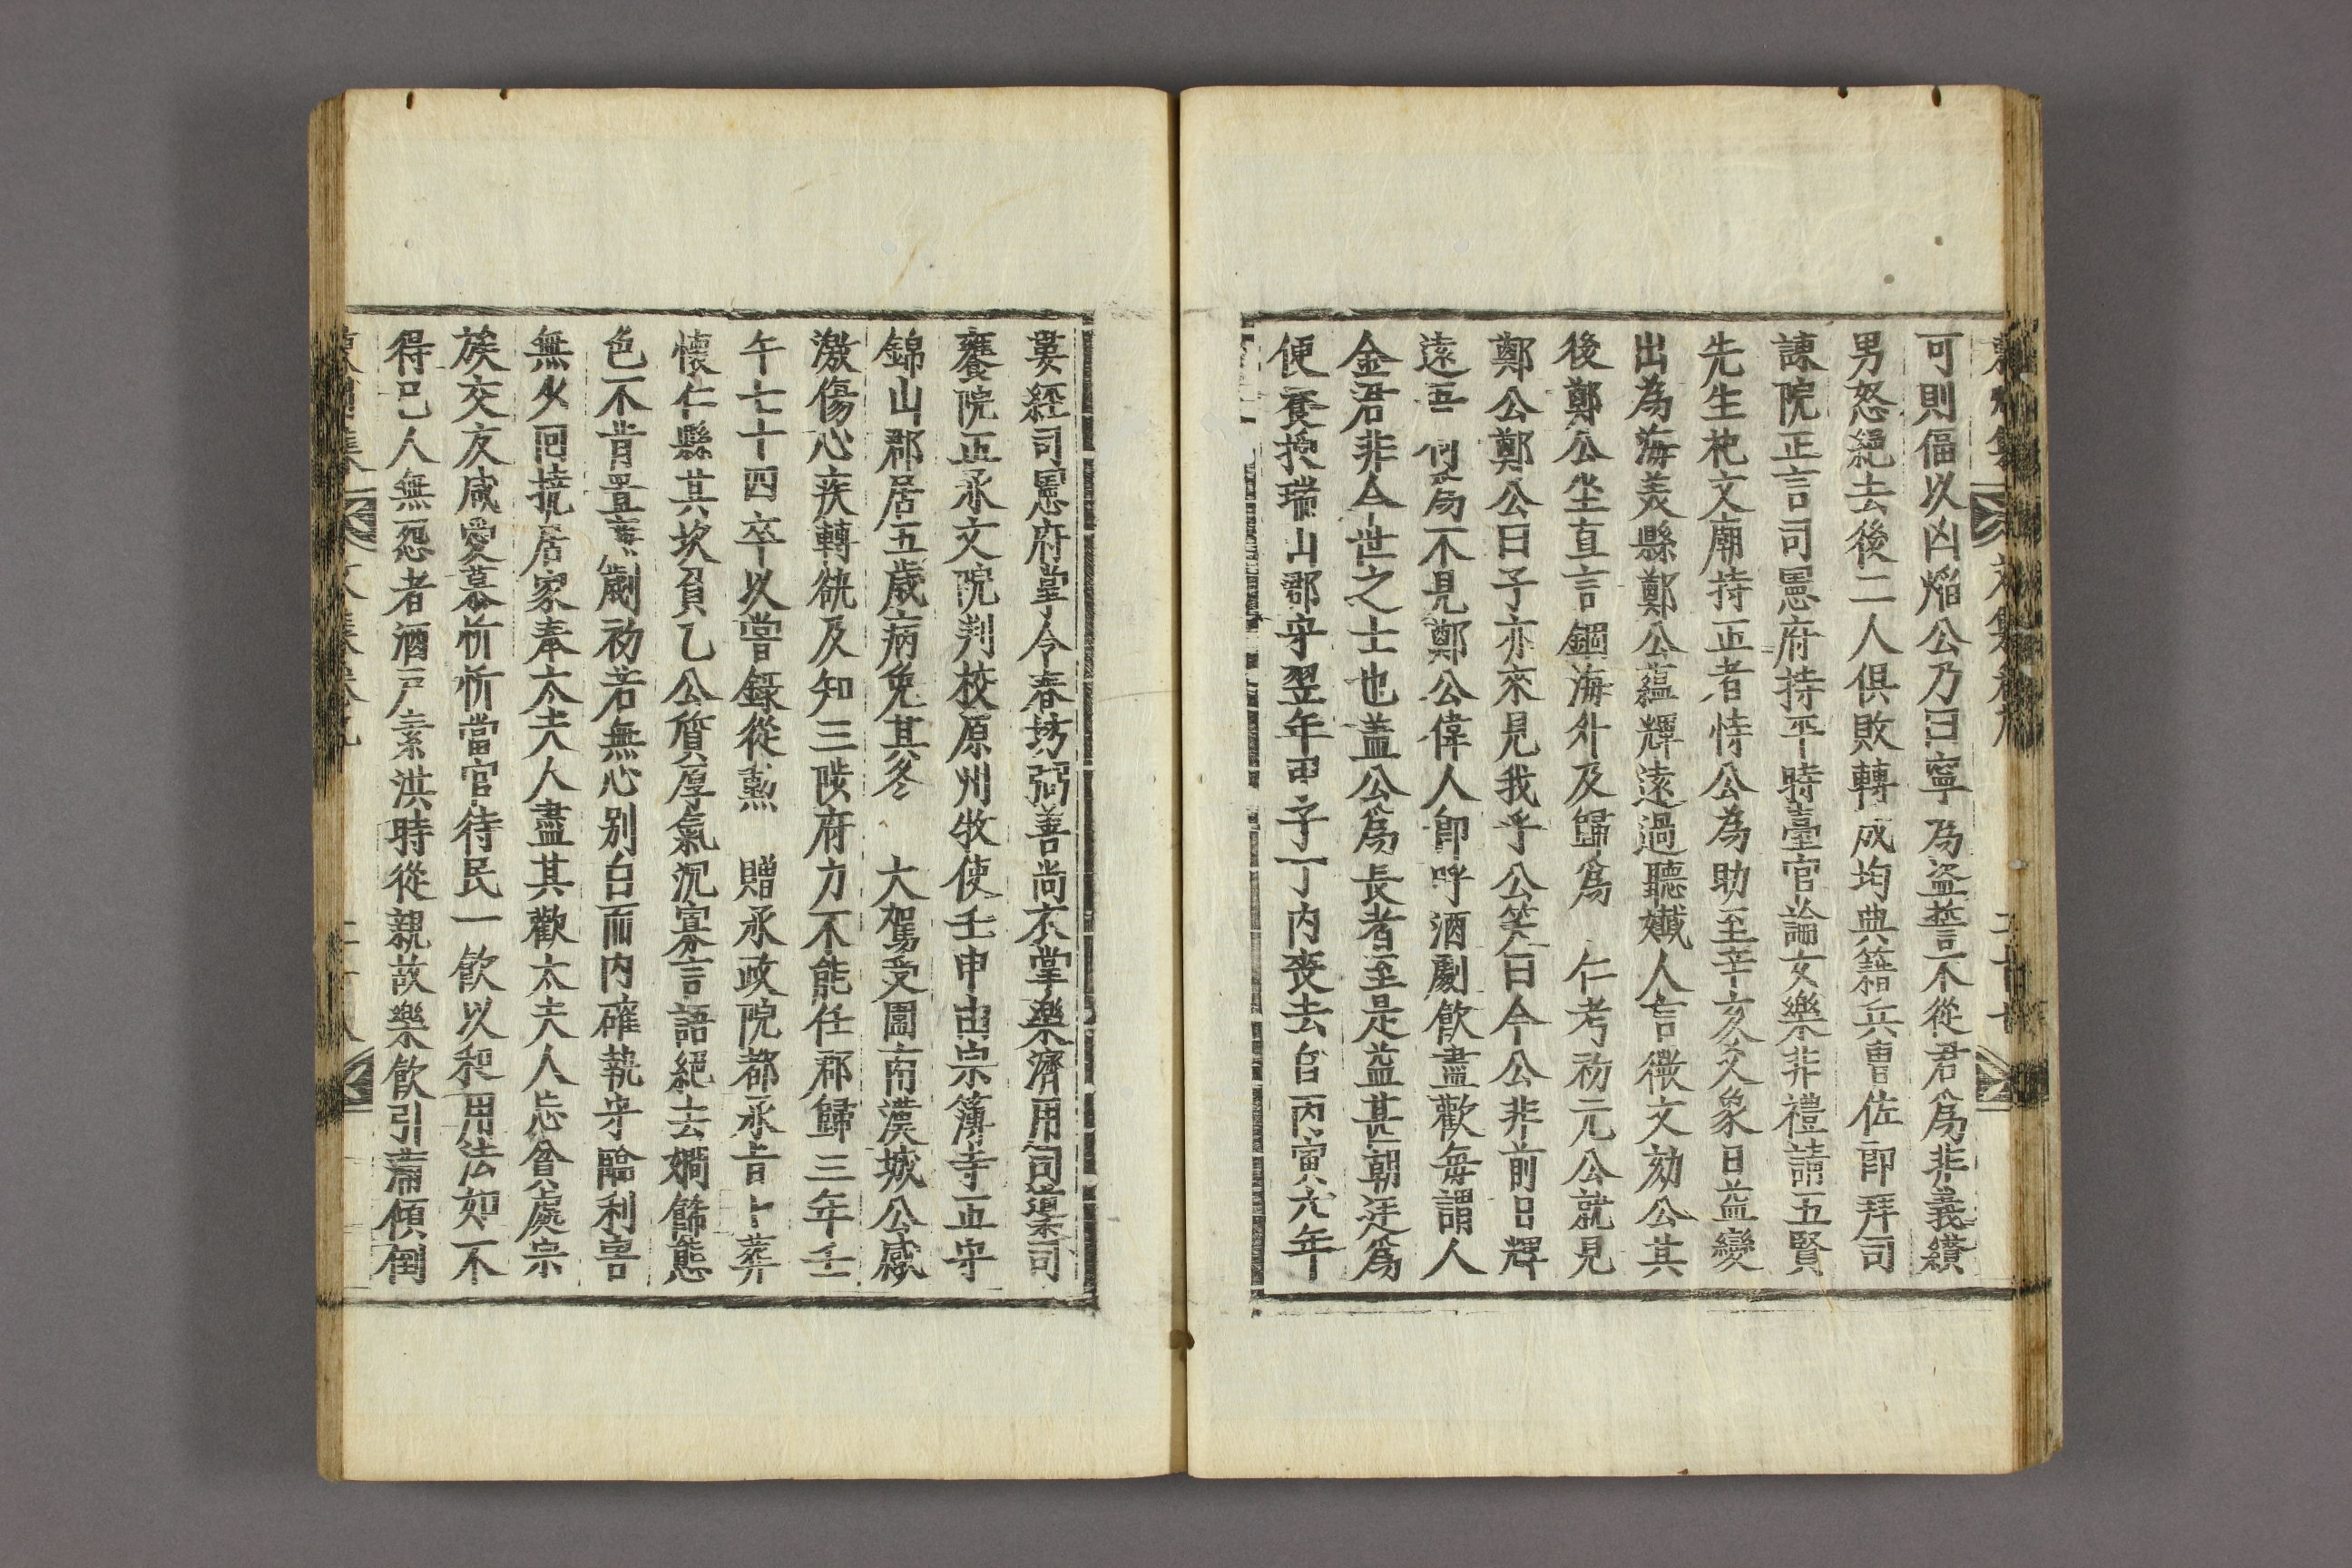 可則偪以凶焰公乃曰寧為盗誓不從君爲非義纘
男怒絕去後二人俱敗轉成均典籍兵曹佐郎拜司
諫院正言司憲府持平時臺官論文樂非禮請五賢
先生祀文廟持正者恃公為助至辛亥爻象日益變
出為海美縣鄭公蘊輝遠過聽孅人言微文劾公其
後鄭公坐直言錮海外及歸爲　仁考初元公就見
鄭公鄭公曰子亦來見我乎公笑曰今公非前日輝
遠吾何為不見鄭公偉人即呼酒劇飮盡歡每謂人
金君非今世之士也盖公爲長者至是益甚朝廷爲
便養換瑞山郡守翌年甲子丁內喪去官丙寅六年
婁經司憲府掌令春坊弼善尚衣掌樂濟用司䆃司
饔院正承文院判校原州牧使壬申由宗簿寺正守
錦山郡居五歲病免其冬　大駕受圍南漢城公感
激傷心疾轉䜟及知三陟府力不能任郡歸三年壬
午七十四卒以嘗錄從勲　贈承政院都承旨卜葬
懷仁縣其坎負乙公質厚氣沉寡言語絕去嫺餙態
色不肯置廉劌初若無心別白而內確執守臨利害
無少回撓居家奉太夫人盡其歡太夫人忘貧處宗
族交友咸愛慕忻忻當官待民一飮以和用法如不
得已人無怨者酒戶素洪時從親故樂飮引蒲傾倒